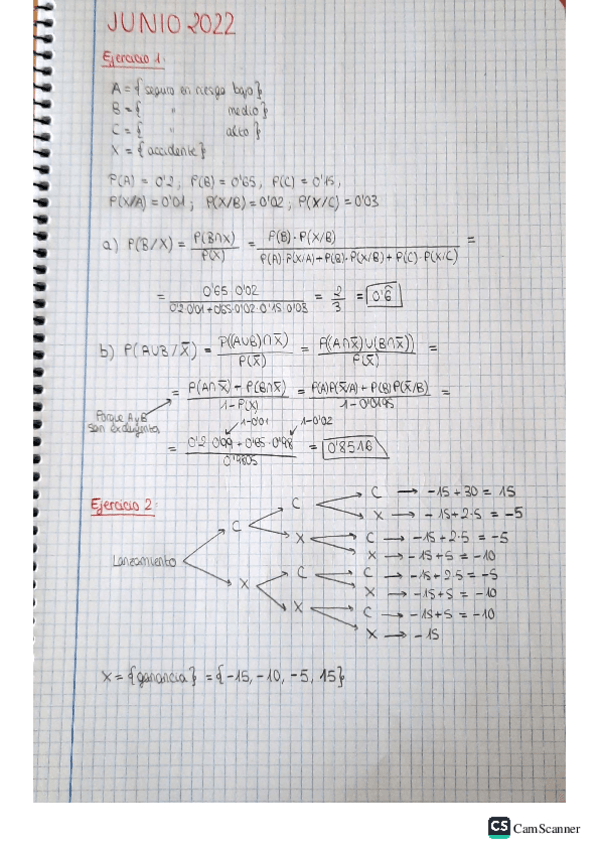 JUNIO 2022
Ejercicio 1:
A = { seguro en riesgo bajo }
B = { " medio }
C = { " alto }
X = { accidente }
P(A) = 0'2 ; P(B) = 0'65 , P(C) = 0'15 ,
P(X/A) = 0'01 ; P(X/B) = 0'02 ; P(X/C) = 0'03
a) P(B/X) = P(B∩X) / P(X) = P(B)·P(X/B) / P(A)·P(X/A) + P(B)·P(X/B) + P(C)·P(X/C) =
= 0'65·0'02 / 0'2·0'01+0'65·0'02·0'15·0'03 = 2/3 = 0'6̂
b) P(A∪B/X̄) = P((A∪B)∩X̄) / P(X̄) = P((A∩X̄)∪(B∩X̄)) / P(X̄) =
= P(A∩X̄) + P(B∩X̄) / 1-P(X) = P(A)P(X̄/A) + P(B)P(X̄/B) / 1-0'0195 =
Porque A y B
son excluyentes
1-0'01 1-0'02
= 0'2·0'99 + 0'65·0'98 / 0'9805 = 0'8516
Ejercicio 2:
Lanzamiento
C
X
C
X
C
X
C → -15 + 30 = 15
X → -15+2·5 = -5
C → -15+2·5 = -5
X → -15+5 = -10
C → -15+2·5 = -5
X → -15+5 = -10
C → -15+5 = -10
X → -15
X = { ganancia } = { -15, -10, -5, 15 }
CS CamScanner